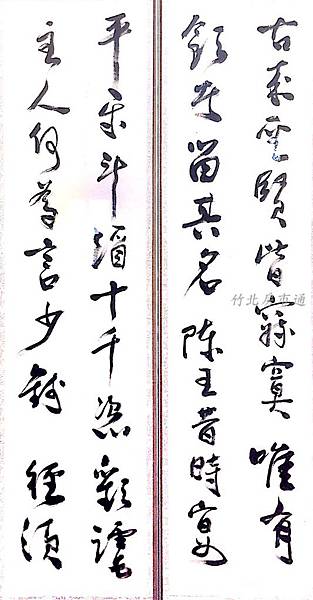 古來聖賢皆寂寞唯有
飲者留其名陳王昔時宴
平樂斗酒十千恣歡謔
主人何為言少錢徑須
竹北房市通